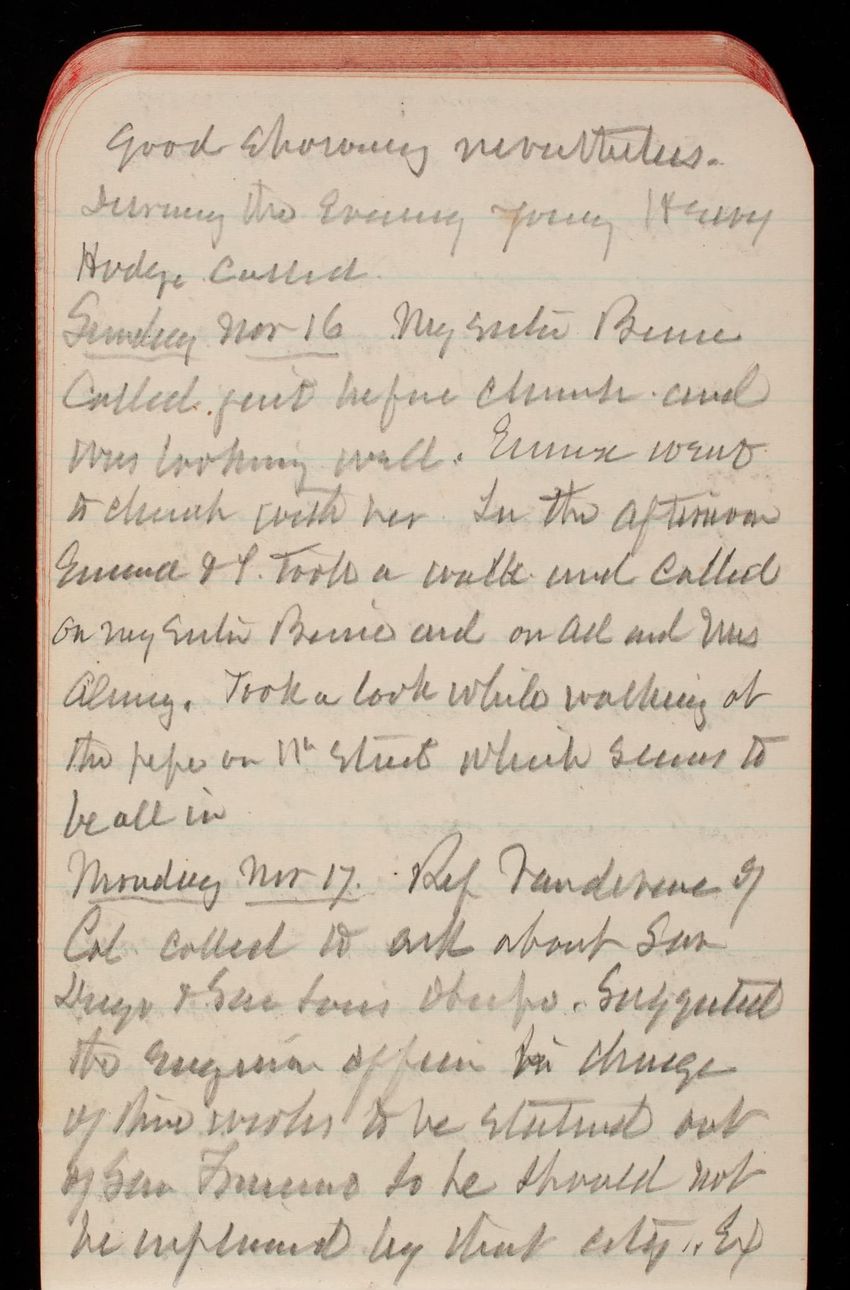 Good showing nevertheless.
During the Evening young Henry
Hodge called
Sunday Nov 16 My sister Bessie
Called just before church and
was looking well. Emma went
to church with her In the afternoon
Emma & I took a walk and called
on my sister Bessie and on Ad and Mrs
Almy. Took a look while walking at
the pipe on 11th Street which seems to
be all in
Monday Nov 17. Rep Vandevere of
Cal called to ask about San
Diego & San Louis Obispo. Suggested
the Engineer officer in charge
of these works to be stationed out
of San Francisco so he should not
be influenced by that city. Ex